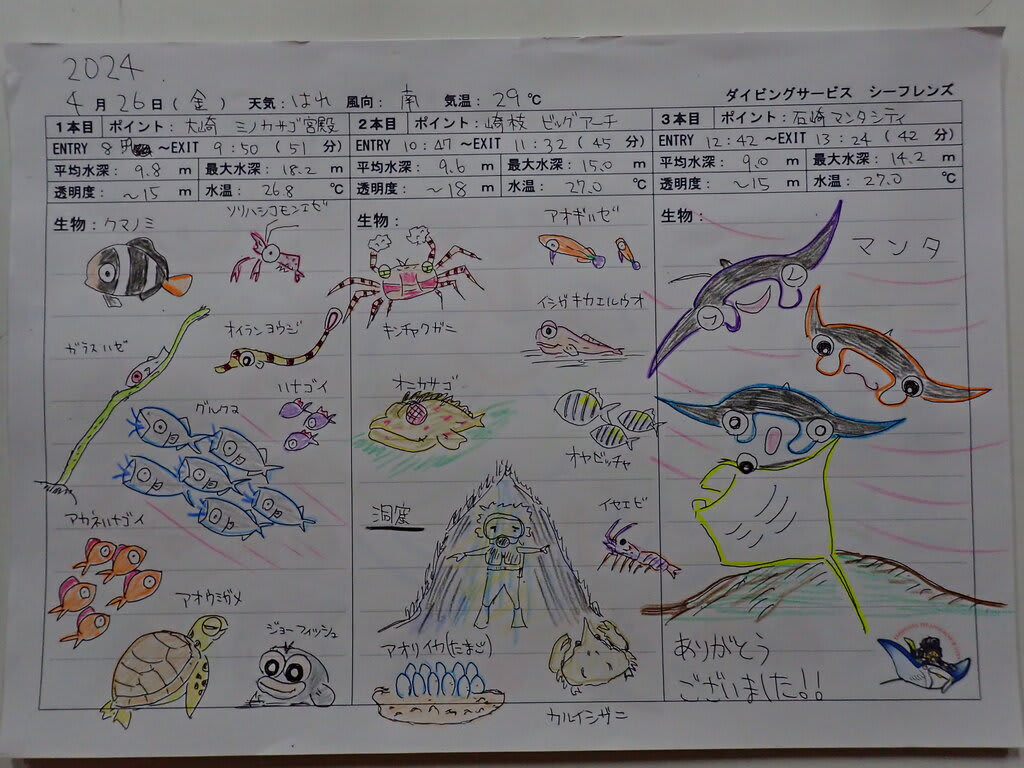 2024.
4月26日(金) 天気:はれ 風向:南 気温:29℃
ダイビングサービス シーフレンズ
1本目 ポイント:大崎 ミノカサゴ宮殿
ENTRY 8 ~EXIT 9:50 (51 分)
平均水深: 9.8 m 最大水深: 18.2 m
透明度: ~15 m 水温: 26.8 ℃
生物:クマノミ
ソリハシコモンエビ
ガラスハゼ
オイランヨウジ
ハナゴイ
グルクマ
アカネハナゴイ
アオウミガメ
ジョーフィッシュ
2本目 ポイント:崎枝 ビッグアーチ
ENTRY 10:47 ~EXIT 11:32 (45 分)
平均水深: 9.6 m 最大水深: 15.0 m
透明度: ~18 m 水温: 27.0 ℃
生物:
アオギハゼ
キンチャクガニ
イシガキカエルウオ
オニカサゴ
オヤビッチャ
洞窟
イセエビ
アオリイカ(たまご)
カルイシガニ
3本目 ポイント:石崎マンタシティ
ENTRY 12:42 ~EXIT 13:24 (42 分)
平均水深: 9.0 m 最大水深: 14.2 m
透明度: ~15 m 水温: 27.0 ℃
生物:
マンタ
ありがとう
ございました!!